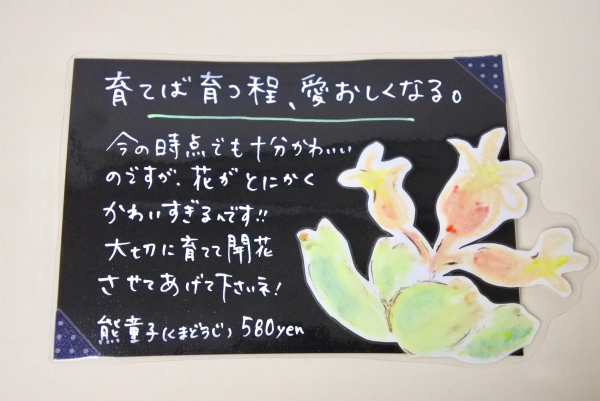 育てば育つ程、愛おしくなる。
今の時点でも十分かわいい
のですが、花がとにかく
かわいすぎるんです!!
大切に育てて開花
させてあげて下さいネ!
熊童子(くまどうじ) 580yen